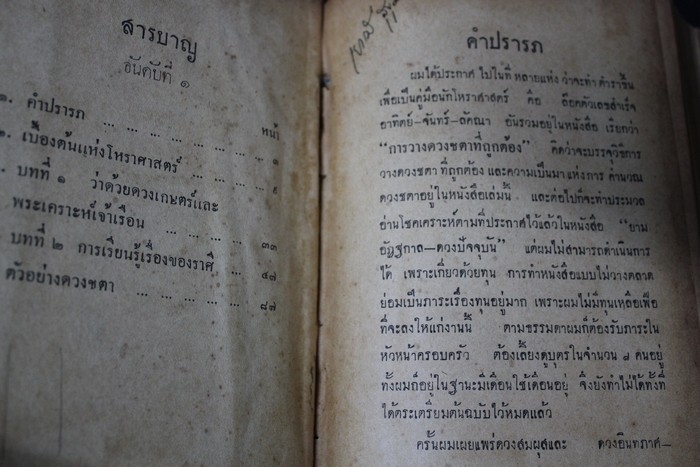 สารบาญ
อันดับที่ ๑
หน้า
๑. คำปรารภ ... ... ... ... ... ... ๑
๒. เบื้องต้นแห่งโหราศาสตร์ ... ... ... ๙
บทที่ ๑ ว่าด้วยดวงเกษตร์และ
พระเคราะห์เข้าเรือน ... ... ... ... ๓๓
บทที่ ๒ การเรียนรู้เรื่องของราศี ... ... ๔๗
ตัวอย่างดวงชตา ... ... ... ... ... ๘๗
คำปรารภ
ผมได้ประกาศ ไปในที่ หลายแห่ง ว่าจะทำ ตำราขึ้น
เพื่อเป็นคู่มือนักโหราศาสตร์ คือ ล๊อคตัวเลขสำเร็จ
อาทิตย์-จันทร์-ลัคณา อันรวมอยู่ในหนังสือ เรียกว่า
“การวางดวงชตาที่ถูกต้อง” คิดว่าจะบรรจุวิธีการ
วางดวงชตา ที่ถูกต้อง และความเป็นมาแห่งการ คำนวณ
ดวงชตาอยู่ในหนังสือเล่มนั้น และต่อไปก็จะทำประมวล
อ่านโชคเคราะห์ตามที่ประกาศไว้แล้วในหนังสือ “ยาม
อัฏฐกาล-ดวงปัจจุบัน” แต่ผมไม่สามารถดำเนินการ
ได้ เพราะเกี่ยวด้วยทุน การทำหนังสือแบบไม่วางตลาด
ย่อมเป็นภาระเรื่องทุนอยู่มาก เพราะผมไม่มีทุนเหลือเฟือ
ที่จะลงให้แก่งานนั้น ตามธรรมดาผมก็ต้องรับภาระใน
หัวหน้าครอบครัว ต้องเลี้ยงดูบุตรในจำนวน ๗ คนอยู่
ทั้งผมก็อยู่ในฐานะมีเดือนใช้เดือนอยู่ จึงยังทำไม่ได้ทั้งที่
ได้ตระเตรียมต้นฉบับไว้หมดแล้ว
ครั้นผมเผยแพร่ดวงสมผุสและ ดวงอินทภาศ-